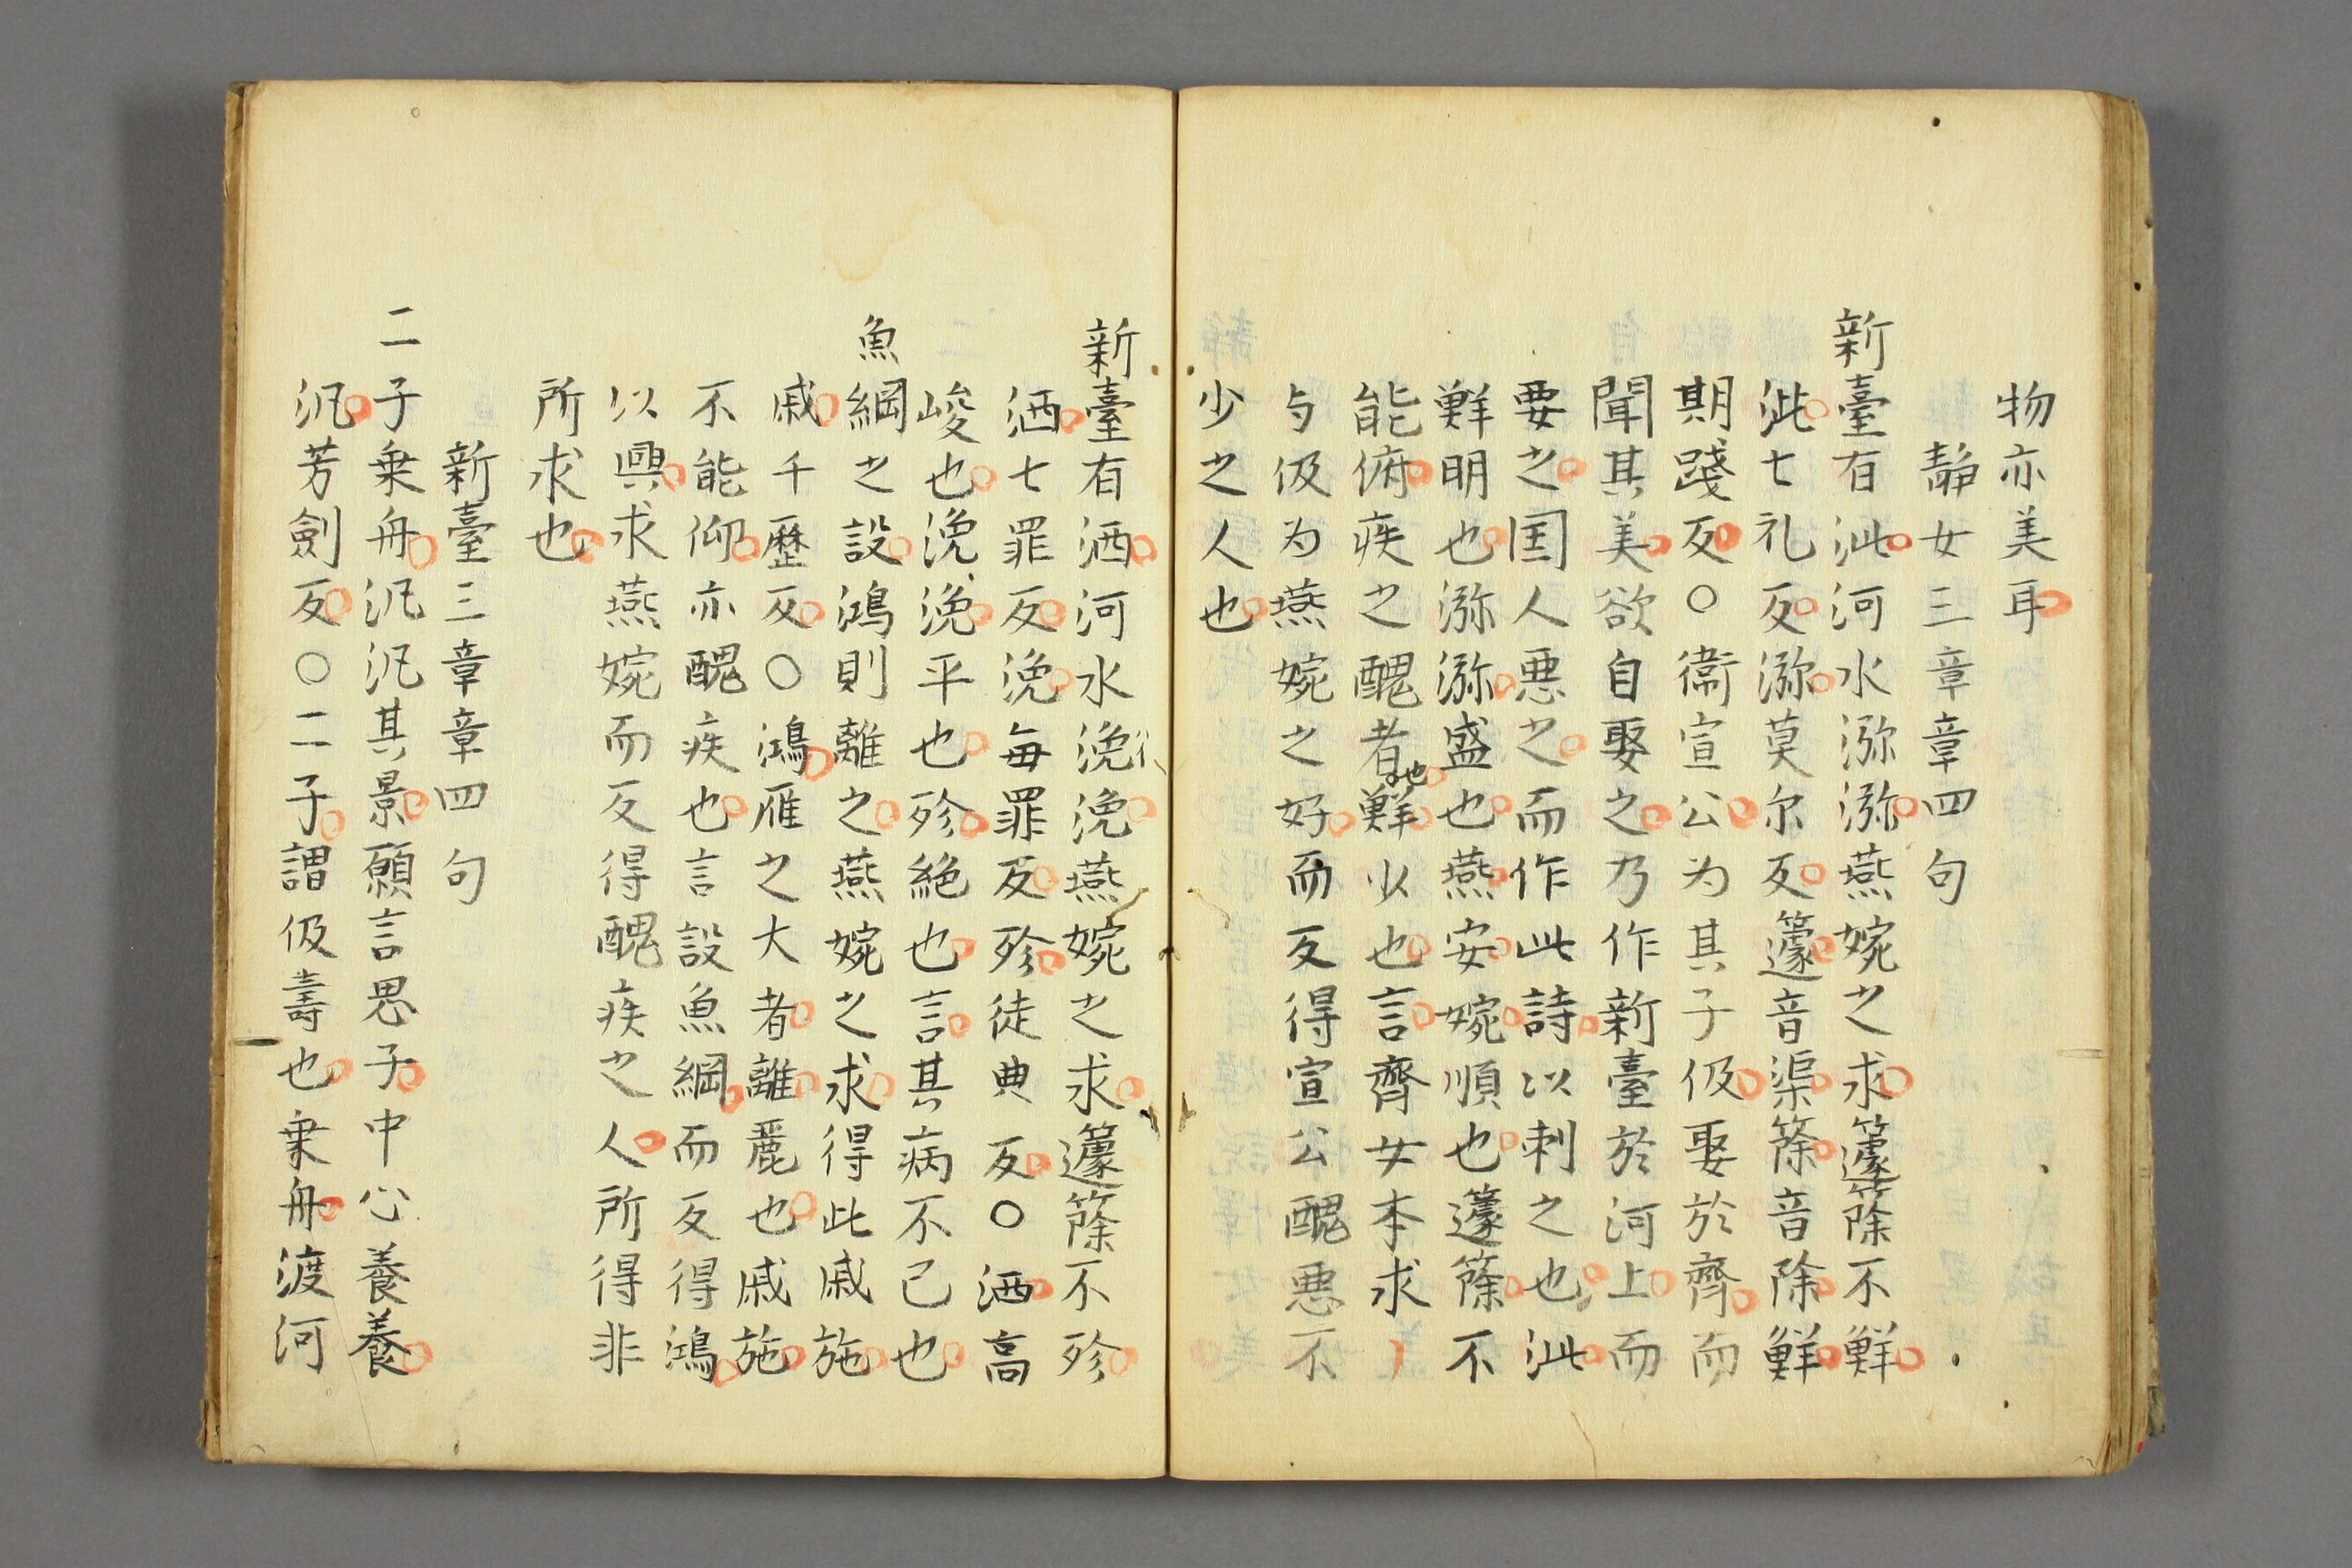 物亦美耳
靜女三章章四句
新臺有泚河水瀰瀰燕婉之求籧篨不鮮
泚七礼反瀰莫尔反籧音渠篨音除鮮
期踐反○衞宣公为其子伋娶於齊而
聞其美欲自娶之乃作新臺於河上而
要之国人悪之而作此詩以刺之也泚
鮮明也瀰瀰盛也燕安婉順也籧篨不
能俯疾之醜者也鮮少也言齊女本求
与伋为燕婉之好而反得宣公醜悪不
少之人也
新臺有洒河水浼浼燕婉之求籧篨不殄
洒七罪反浼毎罪反殄徒典反○洒高
峻也浼浼平也殄絶也言其病不已也
魚綱之設鴻則離之燕婉之求得此戚施
戚千歷反○鴻雁之大者離麗也戚施
不能仰亦醜疾也言設魚綱而反得鴻
以興求燕婉而反得醜疾之人所得非
所求也
新臺三章章四句
二子乗舟汎汎其景願言思子中心養養
汎芳劍反○二子謂伋壽也乗舟渡河